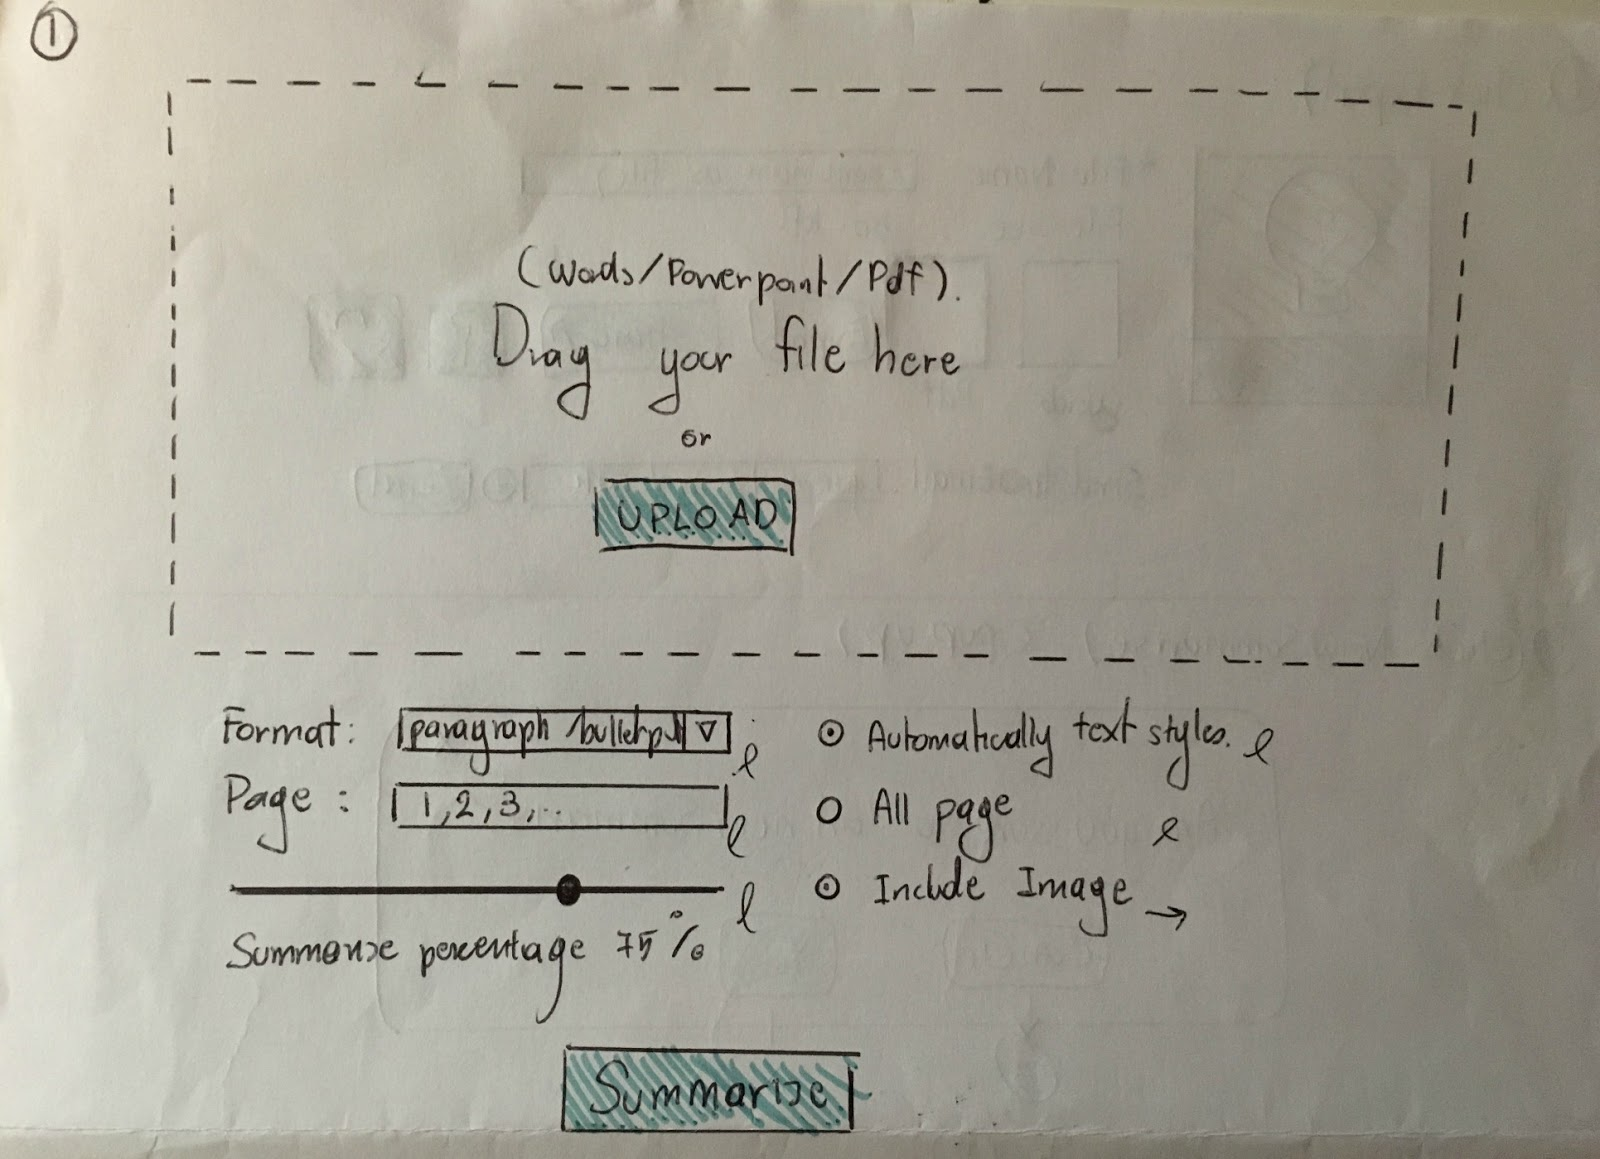 1
(Words/Powerpoint/Pdf).
Drag your file here
or
UPLOAD
Format: paragraph /bulletp
Page : 1,2,3,..
Summarize percentage 75%
Automatically text styles.
All page
Include Image →
Summarize